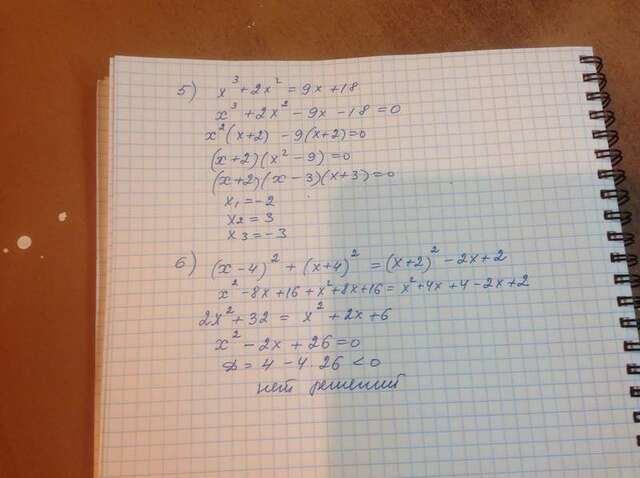 5) x³ + 2x² = 9x + 18
x³ + 2x² - 9x - 18 = 0
x²(x+2) - 9(x+2) = 0
(x+2)(x² - 9) = 0
(x+2)(x-3)(x+3) = 0
x₁ = -2
x₂ = 3
x₃ = -3
6) (x-4)² + (x+4)² = (x+2)² - 2x + 2
x² - 8x + 16 + x² + 8x + 16 = x² + 4x + 4 - 2x + 2
2x² + 32 = x² + 2x + 6
x² - 2x + 26 = 0
D = 4 - 4·26 < 0
нет решений